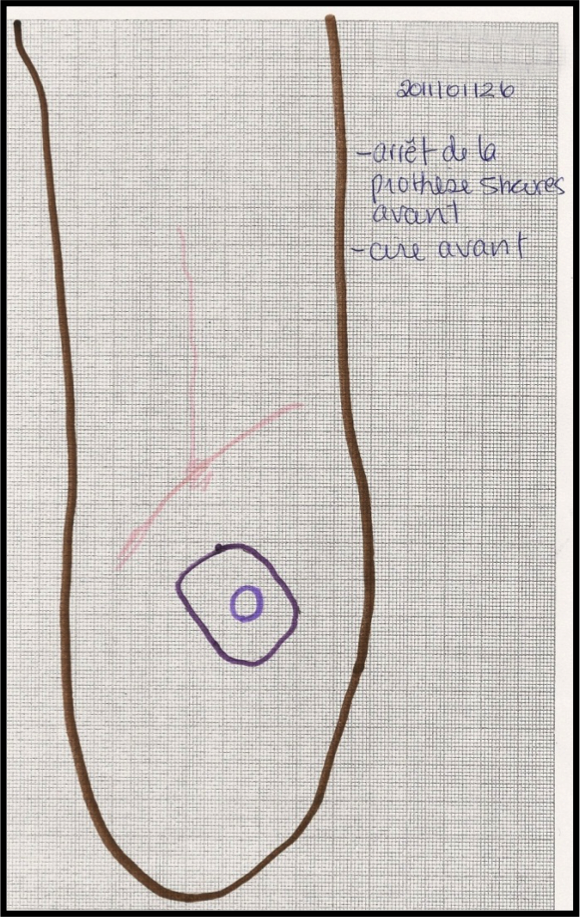 2011/01/26
-arrêt de la
prothèse 5heures
avant
-cire avant